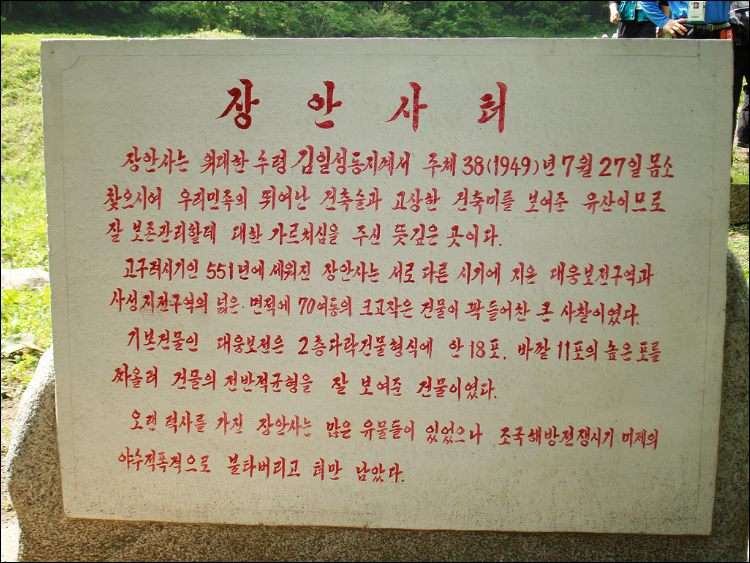 장안사터
장안사는 위대한 수령 김일성동지께서 주체38(1949)년 7월 27일 몸소
찾으시여 우리민족의 뛰여난 건축술과 고상한 건축미를 보여준 유산이므로
잘 보존관리할데 대한 가르치심을 주신 뜻깊은 곳이다.
고구려시기인 551년에 세워진 장안사는 서로 다른 시기에 지은 대웅보전구역과
사성지전구역의 넓은 면적에 70여동의 크고작은 건물이 꽉 들어찬 큰 사찰이였다.
기본건물인 대웅보전은 2층다락건물형식에 안 18포, 바깥 11포의 높은 포를
짜올려 건물의 전반적균형을 잘 보여준 건물이였다.
오랜 력사를 가진 장안사는 많은 유물들이 있었으나 조국해방전쟁시기 미제의
야수적폭격으로 불타버리고 터만 남았다.